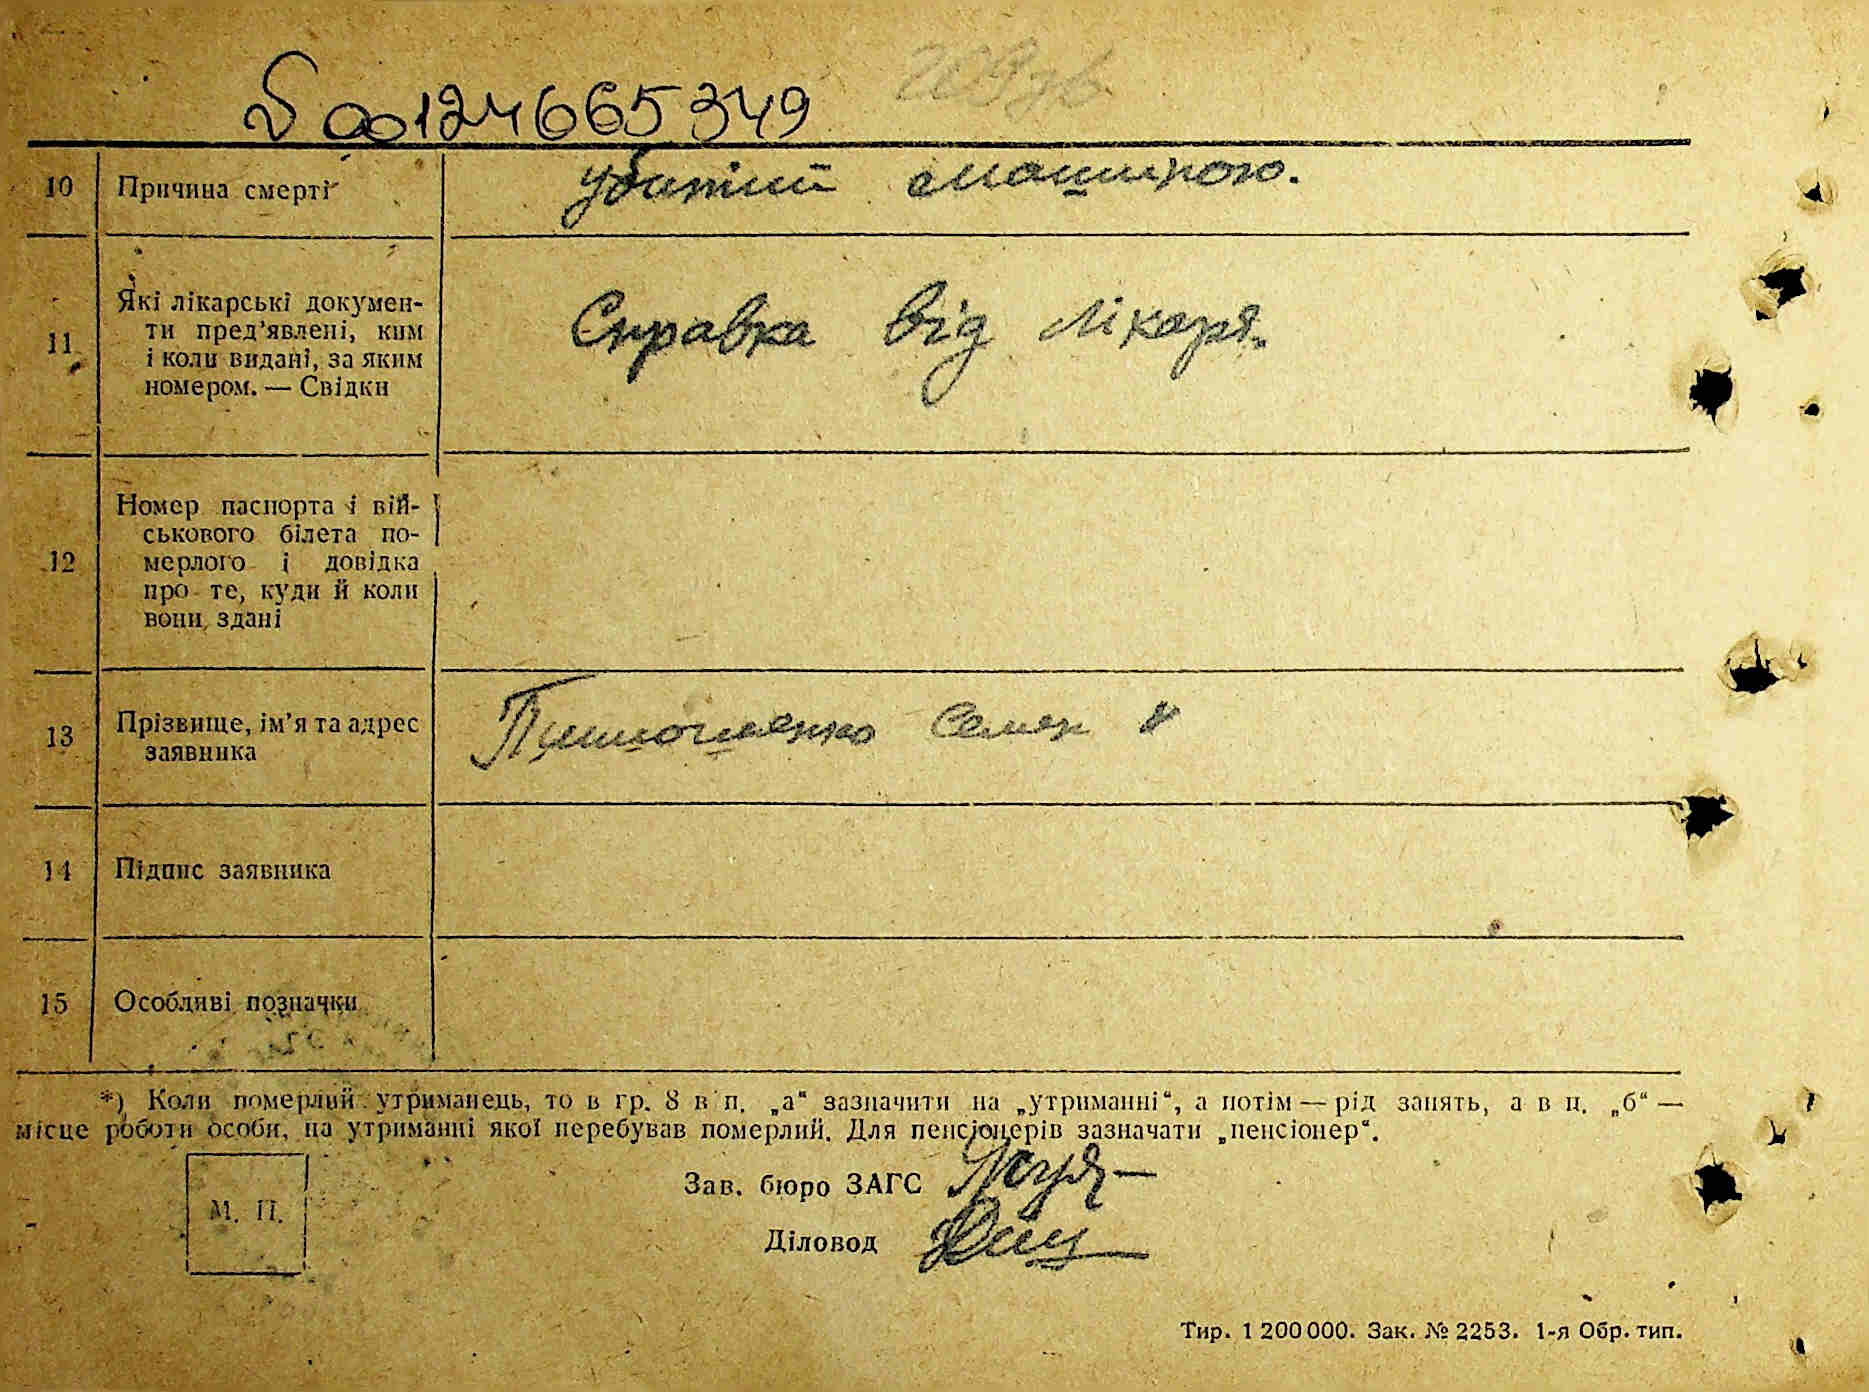 00124665349
10 Причина смерті убитий машиною.
11 Які лікарські докумен-
ти пред'явлені, ким
і коли видані, за яким
номером. — Свідки
Справка від лікаря.
12 Номер паспорта і вій-
ськового білета по-
мерлого і довідка
про те, куди й коли
вони здані
13 Прізвище, ім'я та адрес
заявника
Семен
14 Підпис заявника
15 Особливі позначки
*) Коли померлий утриманець, то в гр. 8 в п. „а“ зазначити на „утриманні“, а потім — рід занять, а в п. „б“ —
місце роботи особи, на утриманні якої перебував померлий. Для пенсіонерів зазначати „пенсіонер“.
Зав. бюро ЗАГС
М. П.
Діловод
Тир. 1 200 000. Зак. № 2253. 1-я Обр. тип.